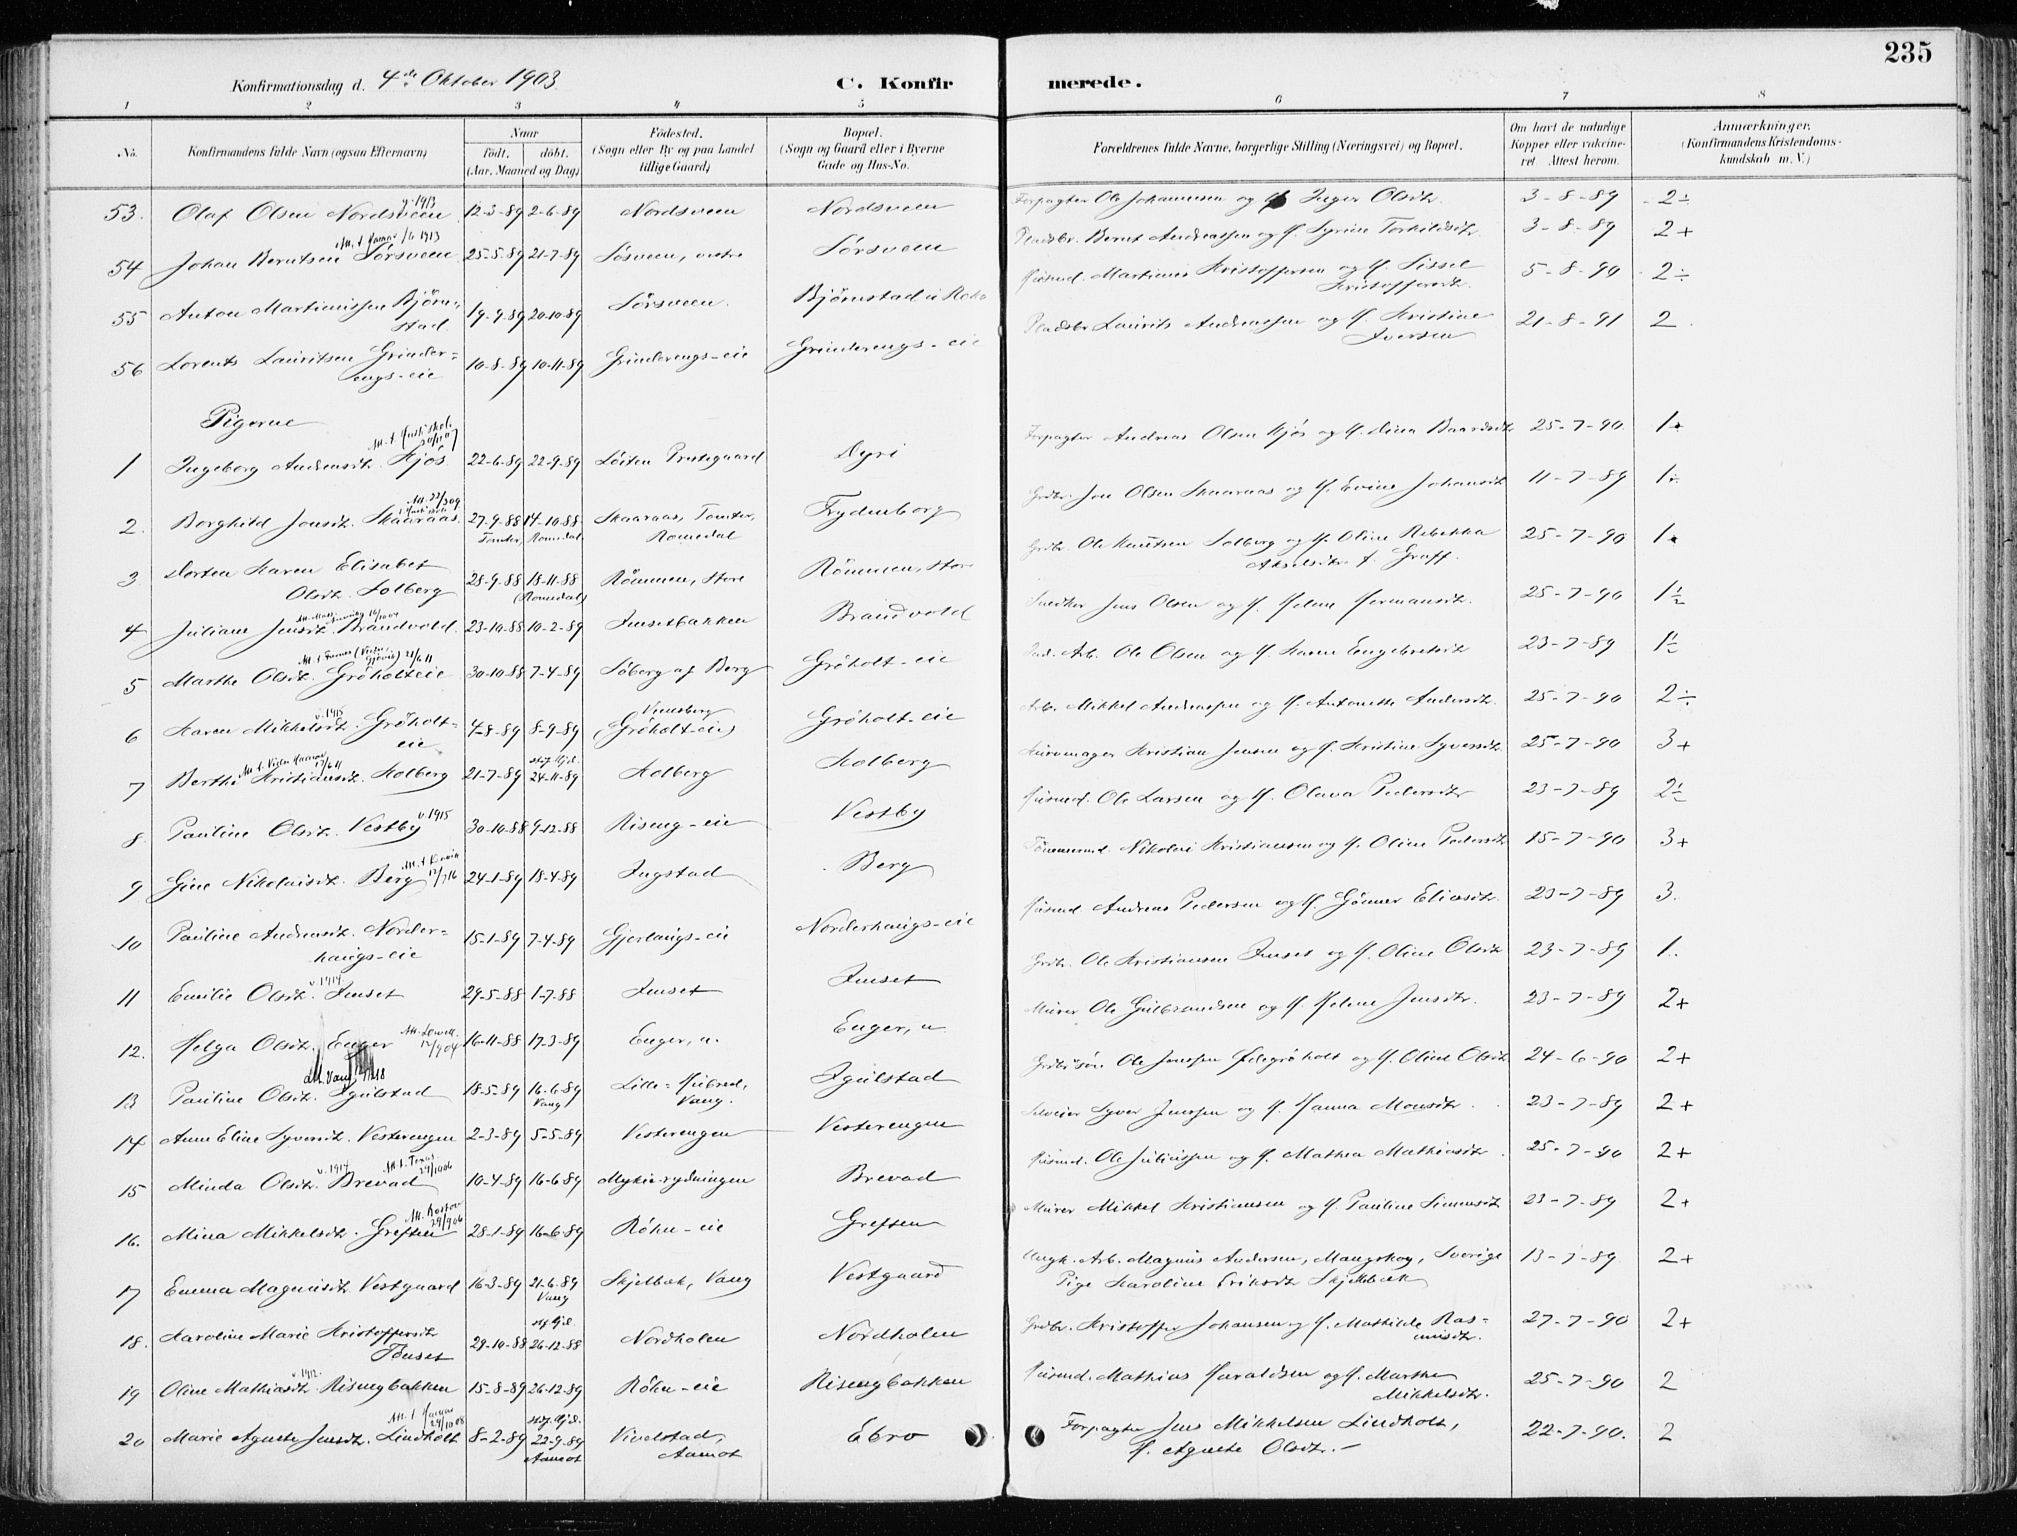 235
Konfirmationsdag d. 4de Oktober 1903.
C. Konfirmerede.
1 2 3 4 5 6 7 8
No. Konfirmandens fulde Navn (ogsaa Efternavn) Naar födt. döbt. (Aar, Maaned og Dag) Födested. (Sogn eller By og paa Landet tillige Gaard) Bopæl. (Sogn og Gaard eller i Byerne Gade og Hus-No. Forældrenes fulde Navne, borgerlige Stilling (Næringsvei) og Bopæl. Om havt de naturlige Kopper eller vakcineret. Attest herom. Anmærkninger. (Konfirmandens Kristendomskundskab m. V.)
53. Olaf Olsen Nordsveen 12-3-89 2-6-89 Nordsveen Nordsveen Forpagter Ole Johannesen og Inger Olsdtr. 3-8-89 2÷
54 Johan Berntsen Sørsveen 25-5-89 21-7-89 Søsveen, vestre Sørsveen Pladsbr. Bernt Andreassen og H. Syrine Torkildsdtr. 3-8-89 2+
55 Anton Martiniussen Bjørnstad 19-9-89 20-10-89 Sørsveen. Bjørnstad Husmd. Martinius Kristoffersen og H. Sissel Kristoffersdtr. 5-8-90 2÷
56 Lorents Lauritsen Grinderengs-eie 10-8-89 10-11-89 Grinderengs-eie Grinderengs-eie Pladsbr Laurits Andreassen og H. Kristine Iversen 21-8-91 2
Pigerne
1 Ingeborg Andreasdtr. Kjøs 22-6-89 22-9-89 Løiten Prestegaard Dyri Forpagter Andreas Olsen Kjøs og H. Lina Baardsdtr. 25-7-90 1+
2. Borghild Jonsdtr. Skaaraas. 27-9-88 14-10-88 Tomter, Romedal Skaaraas, Tomter, Romedal Frydenborg Grdbr. Jon Olsen Skaaraas og H. Evine Johansdtr 11-7-89 1÷
3 Dorthea Karen Elisabet Olsdtr. Solberg 28-9-88 18-11-88 (Romedal) Rømmen, store Rømmen, store Grdbr. Ole Knutsen Solberg og H. Oline Rebekka Akselsdtr. f. Graff. 25-7-90 1.
4 Juliane Jensdtr. Brandvold. 23-10-88 10-2-89 Imsetbakken Brandvold Snedker Jens Olsen og H. Helene Hermansdtr. 25-7-90 1½
5 Marthe Olsdtr. Grøholteie 30-10-88 7-4-89 Søberg af Berg Grøholt-eie Arb. Ole Olsen og H. Karen Engebretsdtr 23-7-89 1½
6 Karen Mikkelsdtr. Grøholt-eie v. 1915 4-8-89 8-9-89 (Grøholt-eie) Grøholt-eie Arb. Mikkel Andreassen og H. Antonette Andersdtr. 25-7-90 2÷
7 Berthe Kristiansdtr. Kolberg 21-7-89 24-11-89 Kolberg Kolberg Kurvmager Kristian Jensen og H. Kristine Syversdtr 25-7-90 3+
8. Pauline Olsdtr. Vestby v. 1915 30-10-88 9-12-88 Riseng-eie Vestby Husmd. Ole Larsen og H. Olava Pedersdtr 23-7-89 2½
9 Gine Nikolaisdtr. Berg 24-1-89 18-4-89 Ingstad Berg Nikolai Kristiansen og H. Oline Pedersdtr 15-7-90 3+
10 Pauline Andreasdtr. Norderhaugs-eie 15-1-89 7-4-89 Gjerlaugs-eie Norderhaugs-eie Husmd. Andreas Pedersen og H. Gunner Eliasdtr. 23-7-89 3.
11 Emilie Olsdtr. Imset v. 1914 29-5-88 1-7-88 Imset Imset Grdbr. Ole Kristiansen Imset og H. Oline Olsdtr 23-7-89 1.
12. Helga Olsdtr. Enger 16-11-88 17-3-89 Enger, n. Enger, n Murer Ole Gulbrandsen og H. Helene Jensdtr. 23-7-89 2+
13 Pauline Olsdtr. Igulstad Att. Vang 18-5-89 16-6-89 Vang Lille-Hubred, Vang. Igulstad Ole Jenssen Ødegrøholt og H. Oline Olsdtr 24-6-90 2+
14 Anne Eline Syversdtr. Vesterengen 2-3-89 5-5-89 Vesterengen Vesterengen Selveier Syver Jenssen og H. Hanna Monsdtr. 23-7-89 2+
15 Minda Olsdtr. Brevad v. 1914 Att. t. Texas 10-4-89 16-6-89 Myhre-rydningen Brevad Husmd. Ole Juliussen og H. Mathea Mathiasdtr. 25-7-90 2+
16. Mina Mikkelsdtr. Grefsen 28-1-89 16-6-89 Røhn-eie Grefsen Murer Mikkel Kristiansen og H. Pauline Simensdtr 23-7-89 2+
17 Emma Magnusdtr. Vestgaard 16-3-89 21-6-89 Vang Skjelbæk, Vang Vestgaard Ungk. Arb. Magnus Andersen, Mangskog, Sverige Pige Karoline Eriksdtr Skjelbæk 13-7-89 2+
18. Karoline Marie Kristoffersdtr Tønset 29-10-88 26-12-88 Nordholen Nordholen Grdbr. Kristoffer Johansen og H. Mathilde Rasmusdtr. 27-7-90 2+
19 Oline Mathiasdtr. Risengbakken v. 1912. 15-8-89 26-12-89 Røhn-eie Risengbakken Husmd. Mathias Haraldsen og H. Marthe Mikkelsdtr. 25-7-90 2
20 Marie Agnete Jensdtr. Lindholt 8-2-89 22-9-89 Aamot Aamot Ebro Forpagter Jens Mikkelsen Lindholt, H. Agnete Olsdtr. 22-7-90. 2